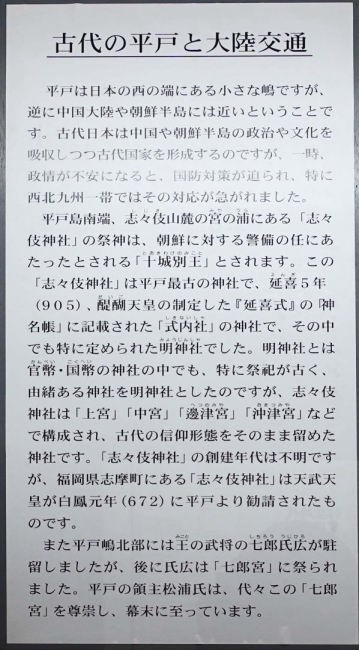 古代の平戸と大陸交通
平戸は日本の西の端にある小さな嶋ですが、
逆に中国大陸や朝鮮半島には近いということで
す。古代日本は中国や朝鮮半島の政治や文化を
吸収しつつ古代国家を形成するのですが、一時、
政情が不安になると、国防対策が迫られ、特に
西北九州一帯ではその対応が急がれました。
平戸島南端、志々伎山麓の宮の浦にある「志々
伎神社」の祭神は、朝鮮に対する警備の任にあ
たったとされる「十城別王」とされます。この
「志々伎神社」は平戸最古の神社で、延喜5年
(905)、醍醐天皇の制定した『延喜式』の「神
名帳」に記載された「式内社」の神社で、その中
でも特に定められた明神社でした。明神社とは
官幣・国幣の神社の中でも、特に祭祀が古く、
由緒ある神社を明神社としたのですが、志々伎
神社は「上宮」「中宮」「邊津宮」「沖津宮」など
で構成され、古代の信仰形態をそのまま留めた
神社です。「志々伎神社」の創建年代は不明です
が、福岡県志摩町にある「志々伎神社」は天武天
皇が白鳳元年(672)に平戸より勧請されたも
のです。
また平戸嶋北部には王の武将の七郎氏広が駐
留しましたが、後に氏広は「七郎宮」に祭られ
ました。平戸の領主松浦氏は、代々この「七郎
宮」を尊崇し、幕末に至っています。